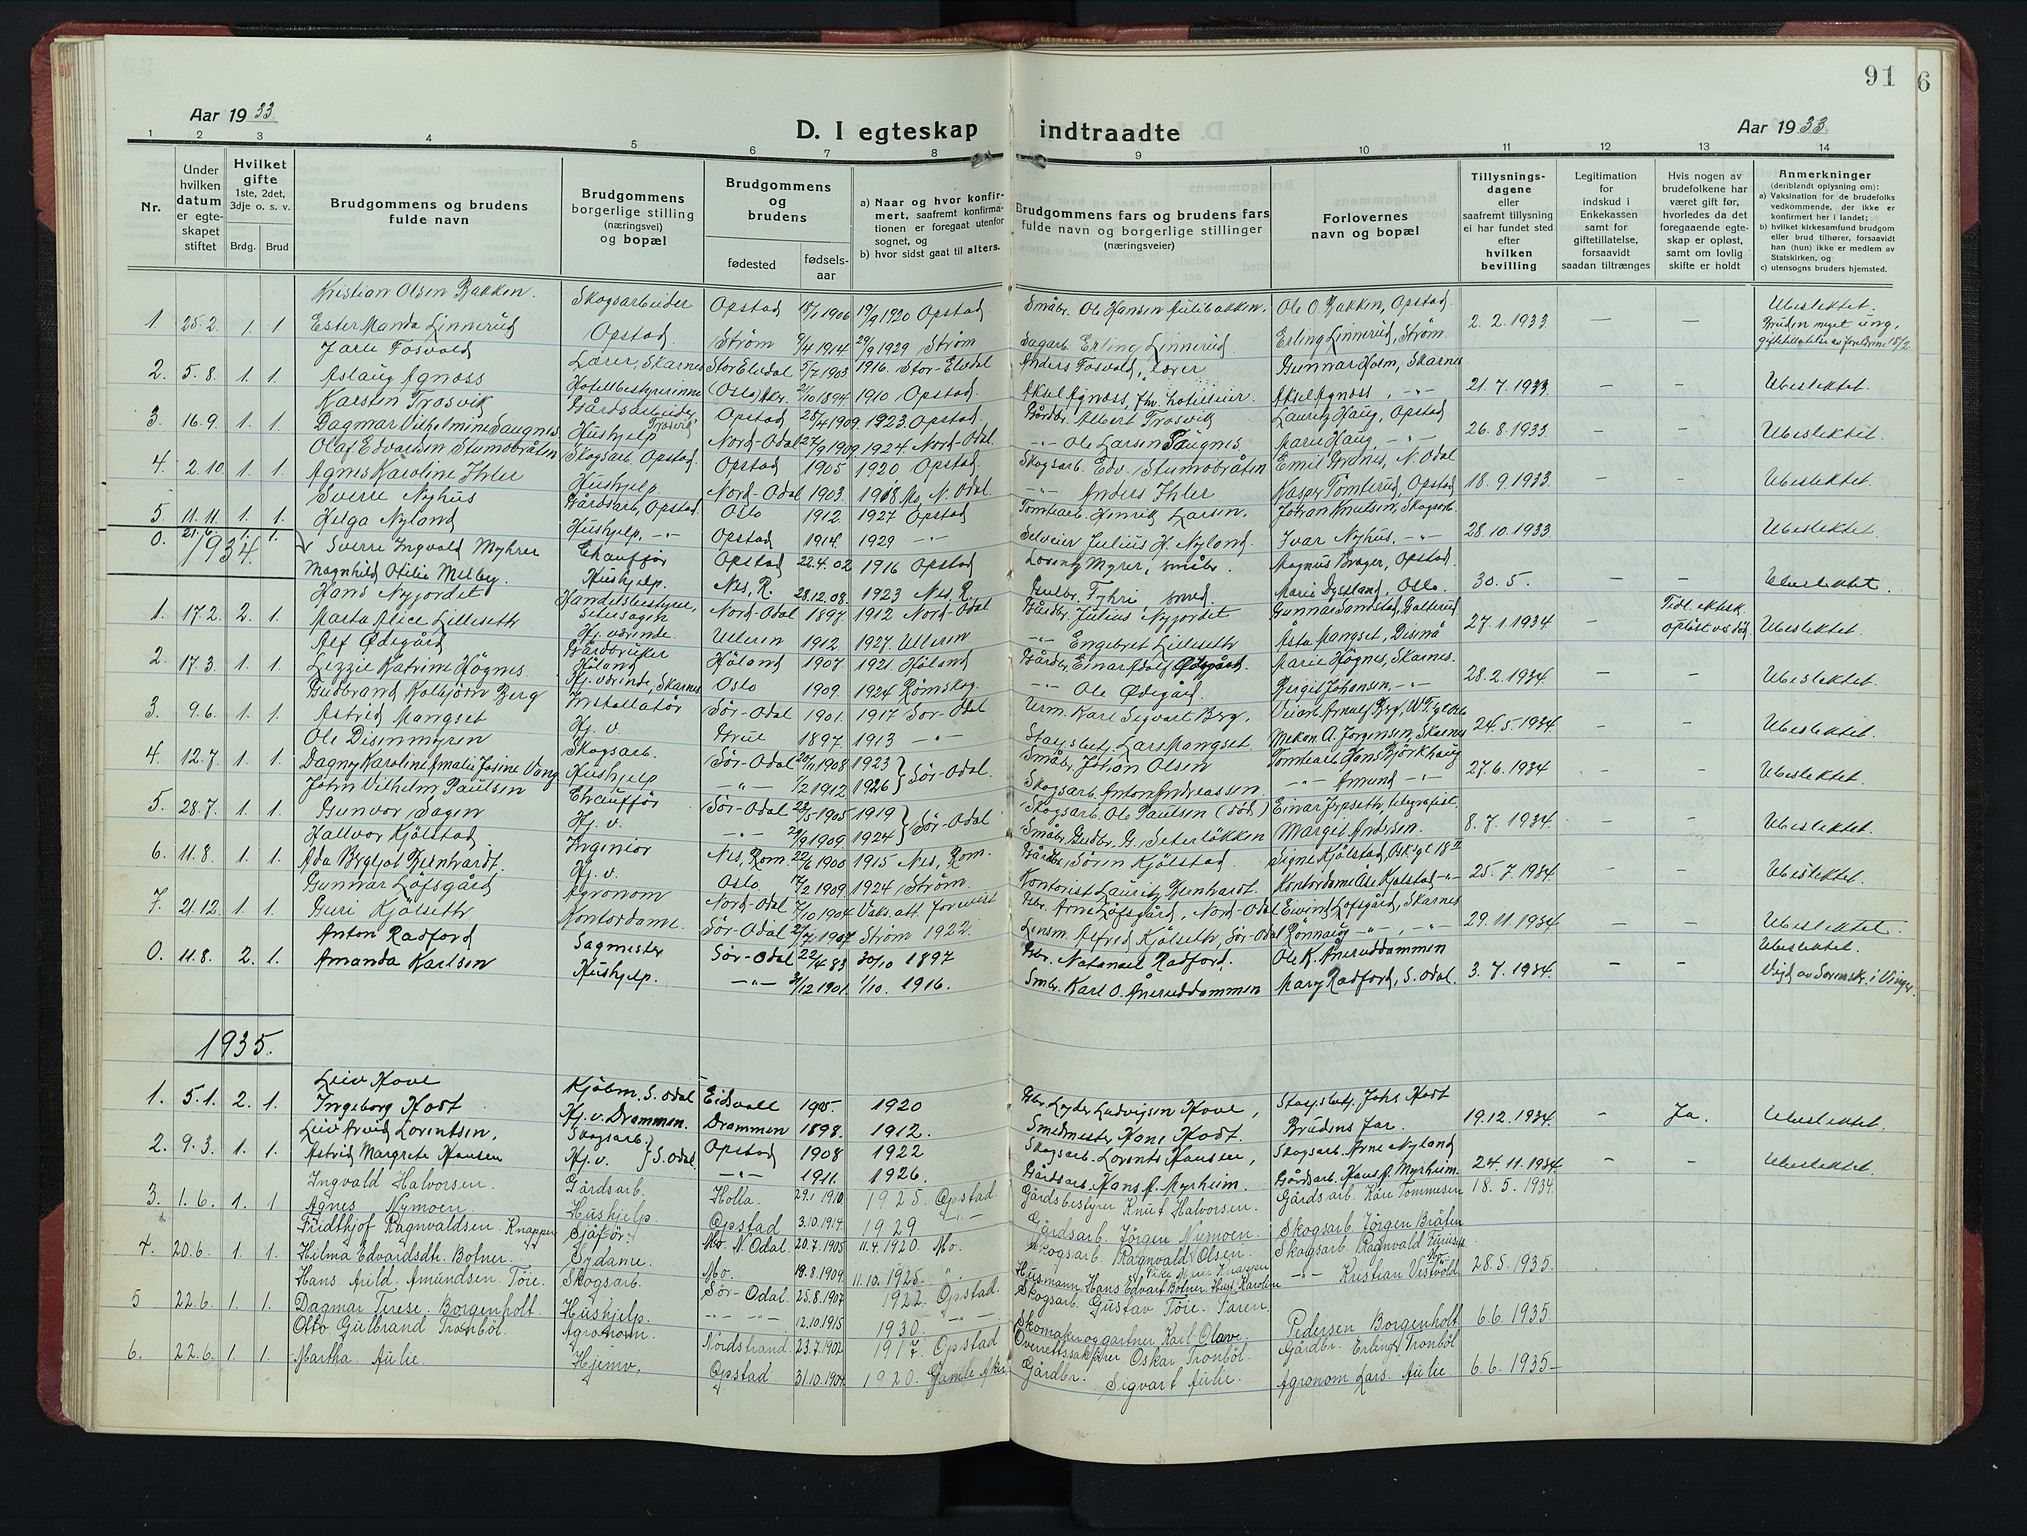 91
6
Aar 1933
D. I egteskap indtraadte
Aar 1933.
1 2 3 4 5 6 7 8 9 10 11 12 13 14
Nr.
Under hvilken datum er egteskapet stiftet
Hvilket gifte 1ste, 2det, 3dje o. s. v.
Brdg. Brud
Brudgommens og brudens fulde navn
Brudgommens borgerlige stilling (næringsvei) og bopæl
Brudgommens og brudens
fødested
fødselsaar
a) Naar og hvor konfirmert, saafremt konfirmationen er foregaat utenfor sognet, og
b) hvor sidst gaat til alters.
Brudgommens fars og brudens fars fulde navn og borgerlige stillinger (næringsveier)
Forlovernes navn og bopæl
Tillysningsdagene eller saafremt tillysning ei har fundet sted efter hvilken bevilling
Legitimation for indskud i Enkekassen samt for giftetillatelse, forsaavidt saadan tiltrænges
Hvis nogen av brudefolkene har været gift før, hvorledes da det foregaaende egteskap er opløst, samt om lovlig skifte er holdt
Anmerkninger (deriblandt oplysning om):
a) Vaksination for de brudefolks vedkommende, der ikke er konfirmert her i landet;
b) hvilket kirkesamfund brudgom eller brud tilhører, forsaavidt han (hun) ikke er medlem av Statskirken, og
c) utensogns bruders hjemsted.
Kristian Olsen Bakken. Skogsarbeider Opstad 1906 1920 Opstad. Småbr. Ole Hansen Aulibakken, Ole O. Bakken, Opstad. Ubeslektet.
1 25.2. 1. 1 Ester Manda Linnerud Opstad. Strøm 9/4 1914 29/9 1929 Strøm Sagarb. Erling Linnerud Erling Linnerud, Strøm. 2.2.1933 – – Bruden meget ung,
Jarle Fosvold Lærer, Skarnes Stor Elvdal 5/7 1903 1916 Stor-Elvdal Anders Fosvold, lærer Gunnar Holm, Skarnes
2. 5.8. 1. 1. Aslaug Agnæss Hotellbestyrerinne (Oslo) Aker 2/10 1894 1910 Opstad. Aksel Agnæss, fhv. hotelleier Aksel Agnæss, -"- 21.7.1933 – – Ubeslektet.
Karsten Trosvik Gårdsarbeider Trosvik Opstad 1909 1923 Opstad. Gårdbr. Albert Trosvik Lauritz Haug, Opstad
3. 16.9. 1. 1. Dagmar Vilhelmine Saugnes Hushjelp Nord-Odal 27/9 1909 1924 Nord-Odal. -"- Ole Larsen Saugnes Marie Haug, -"- 26.8.1933 – – Ubeslektet.
Olaf Edvardsen Stumobråten Skogsarb. Opstad. Opstad 1905 1920 Opstad Skogsarb. Edv. Stumobråten Emil Granes, N. Odal
4. 2.10. 1. 1. Agnes Karoline Ihler Hushjelp Nord-Odal 1903. 1918 Mo, N. Odal. -"- Anders Ihler Kasper Tømterud, Opstad 18.9.1933 – – Ubeslektet.
Sverre Nyhus Gårdsarb., Opstad Oslo 1912 1927 Opstad Tømtearb. Henrik Larsen. Johan Knutsen, Skogsarb.
5. 11.11. 1. 1. Helga Nyland Hushjelp, -"- Opstad 1914 1929 -"- Selveier Julius H. Nyland. Ivar Nyhus, -"- 28.10.1933 – – Ubeslektet.
0. 21.6. 1. 1. Sverre Ingvald Myhrer Chauffør Opstad 22.4.02 1916 Opstad Magnus Brager, Opstad
1934.
Magnhild Otilie Melby. Hushjelp. Nes, R. 28.12.08. 1923 Nes, R. Gulbr. Fyhri, smed. Marie Dystland, Oslo. 30.5. – – Ubeslektet.
Hans Nyjordet Handelsbestyrer, Nord-Odal 1897 1912 Nord-Odal Gårdbr. Julius Nyjordet Gunnar Sandstad, Galterud Tidl. ektesk.
1. 17.2. 2. 1. Marta Alice Lilleseth Hj. værende. Ullern 1912 1927. Ullern -"- Engebret Lilleseth Åsta Mangset, Disenå 27.1.1934 – opløst ved død Ubeslektet.
Alf Ødegård Gårdbruker Høland Høland 1907 1921. Høland Gårdbr. Einar Adolf Ødegård. Marie Høgnes, Skarnes.
2. 17.3. 1. 1. Lizzie Katrine Høgnes Hj. værende, Skarnes Oslo 1909. 1924 Rømskog. -"- Ole Ødegård Bergit Johansen, -"- 28.2.1934. – – Ubeslektet.
Gudbrand Kolbjørn Berg Installatør Sør-Odal 1901. 1917 Sør-Odal Urm. Karl Sigvart Berg,
3. 9.6. 1. 1. Astrid Mangset Hj. v. Grue 1897 1913 -"- Stasjbetj. Lars Mangset Mekan. A. Jørgensen, Skarnes 24.5.1934 – – Ubeslektet.
Ole Disenmyren Skogsarb. Sør-Odal 20/11 1908 1923 Småbr. Johan Olsen Tømtearb. Hans Bjørkhaug
4. 12.7. 1. 1. Dagny Karoline Amalie Josine Vang Hushjelp -"- 1/2 1912 1926 Sør-Odal. Skogsarb. Anton Andreassen -"- Amund -"- 27.6.1934 – – Ubeslektet.
John Vilhelm Paulsen Chauffør Sør-Odal 1905 1919 Skogsarb. Ole Paulsen (død) Einar Jypseth, telegrafist.
5. 28.7. 1. 1. Gunvor Sagen Hj. v. -"- 1909 1924 Sør-Odal Småbr. Gudbr. G. Seterløkken Margit Andersen. 8.7.1934 – – Ubeslektet.
Hallvor Kjølstad Ingeniør Nes, Rom. 1900 1915 Nes, Rom. Gårdbr. Søren Kjølstad. Signe Kjølstad,
6. 11.8. 1. 1. Ada Bergljot Bernhardt. Hj. v. Oslo 17/2 1909 1924 Strøm. Kontorist Lauritz Bernhardt. Kontordame Åse Kjølstad -"- 25.7.1934 – – Ubeslektet.
Gunnar Løfsgård Agronom Nord-Odal 7/10 1904 Vaks.att. forevist Gbr. Arne Løfsgård, Nord-Odal Eivind Løfsgård, Skarnes
7. 21.12. 1. 1. Guri Kjølseth Kontordame. Sør-Odal 1907 Strøm 1922. Lensm. Alfred Kjølseth, Sør-Odal Rønnaug -"-, -"- 29.11.1934 – – Ubeslektet.
Anton Radford Sagmester Sør-Odal 22/4 83 30/10 1897 Gbr. Natanael Radford. Ole K. Åneruddammen Ubeslektet.
0. 11.8. 2. 1. Amanda Karlsen Hushjelp. -"- 3/12 1901. 1/10. 1916. Smbr. Karl O. Åneruddammen Mary Radford, S. Odal. 3.7.1934. – – Viet av Sorenskr. i Vinger.
1935.
Leiv Hove Kjøbm. S. Odal Eidsvoll 1905. 1920 Gbr. Lyder Ludvigsen Hove, Stasjsbetj. Johs Hodt
1. 5.1. 2. 1. Ingeborg Hodt Hj. v. Drammen. Drammen 1898. 1912. Smedmester Hans Hodt. Brudens far. 19.12.1934. – Ja. Ubeslektet.
Leiv Arvid Lorentsen. Skogsarb. Opstad 1908 1922 Skogsarb. Lorents Hansen, Skogsarb. Arne Nyland
2. 9.3. 1. 1. Astrid Margrete Hansen Hj. v. S. Odal. -"- 1911. 1926. Gårdsarb. Hans A. Myrheim. Gårdsarb. Hans A. Myrheim. 24.11.1934 – – Ubeslektet.
Ingvald Halvorsen. Gårdsarb. Holla. 29.1.1910 1925. Opstad Gårdsbestyrer Knut Halvorsen. Gårdsarb. Kåre Tommesen 18.5.1934.
3. 1.6. 1. 1 Agnes Nymoen. Hushjelp. Opstad 3.10.1914. 1929 -"- Gårdsarb. Jørgen Nymoen. Skogsarb. Jørgen Bråten
Fridthjof Ragnvaldsen Knapper Sjåfør. Mo. N. Odal. 20.7.1905 11.4.1920. Mo. Skogsarb. Ragnvald Olsen. Skogsarb. Ragnvald
4. 20.6. 1. 1. Hilma Edvardsdtr. Botner. Sydame. Mo. 19.8.1909. 11.10.1925. " Husmann Hans Edvart Botner -"- Kristian Vestvold 28.5.1935.
Hans Arild Amundsen Tøie. Skogsarb. Sør-Odal. 25.8.1907 1922 Opstad. Skogsarb. Gustav Tøie.
5 22.6. 1. 1. Dagmar Terese Borgenholt. Hushjelp. -"- 12.10.1915 1930. -"- Skomaker og gartner Karl Olave Pedersen Borgenholt 6.6.1935
Otto Gulbrand Tronbøl. Agronom. Nordstrand. 23.7.1902 1917. Opstad Overrettssakfører Oskar Tronbøl. Gårdbr. Erling Tronbøl
6. 22.6. 1. 1. Martha Aulie. Hjemv. Opstad. 31.10.1904. 1920. Gamle Aker Gårdbr. Sigvart Aulie. Agronom Lars Aulie 6.6.1935